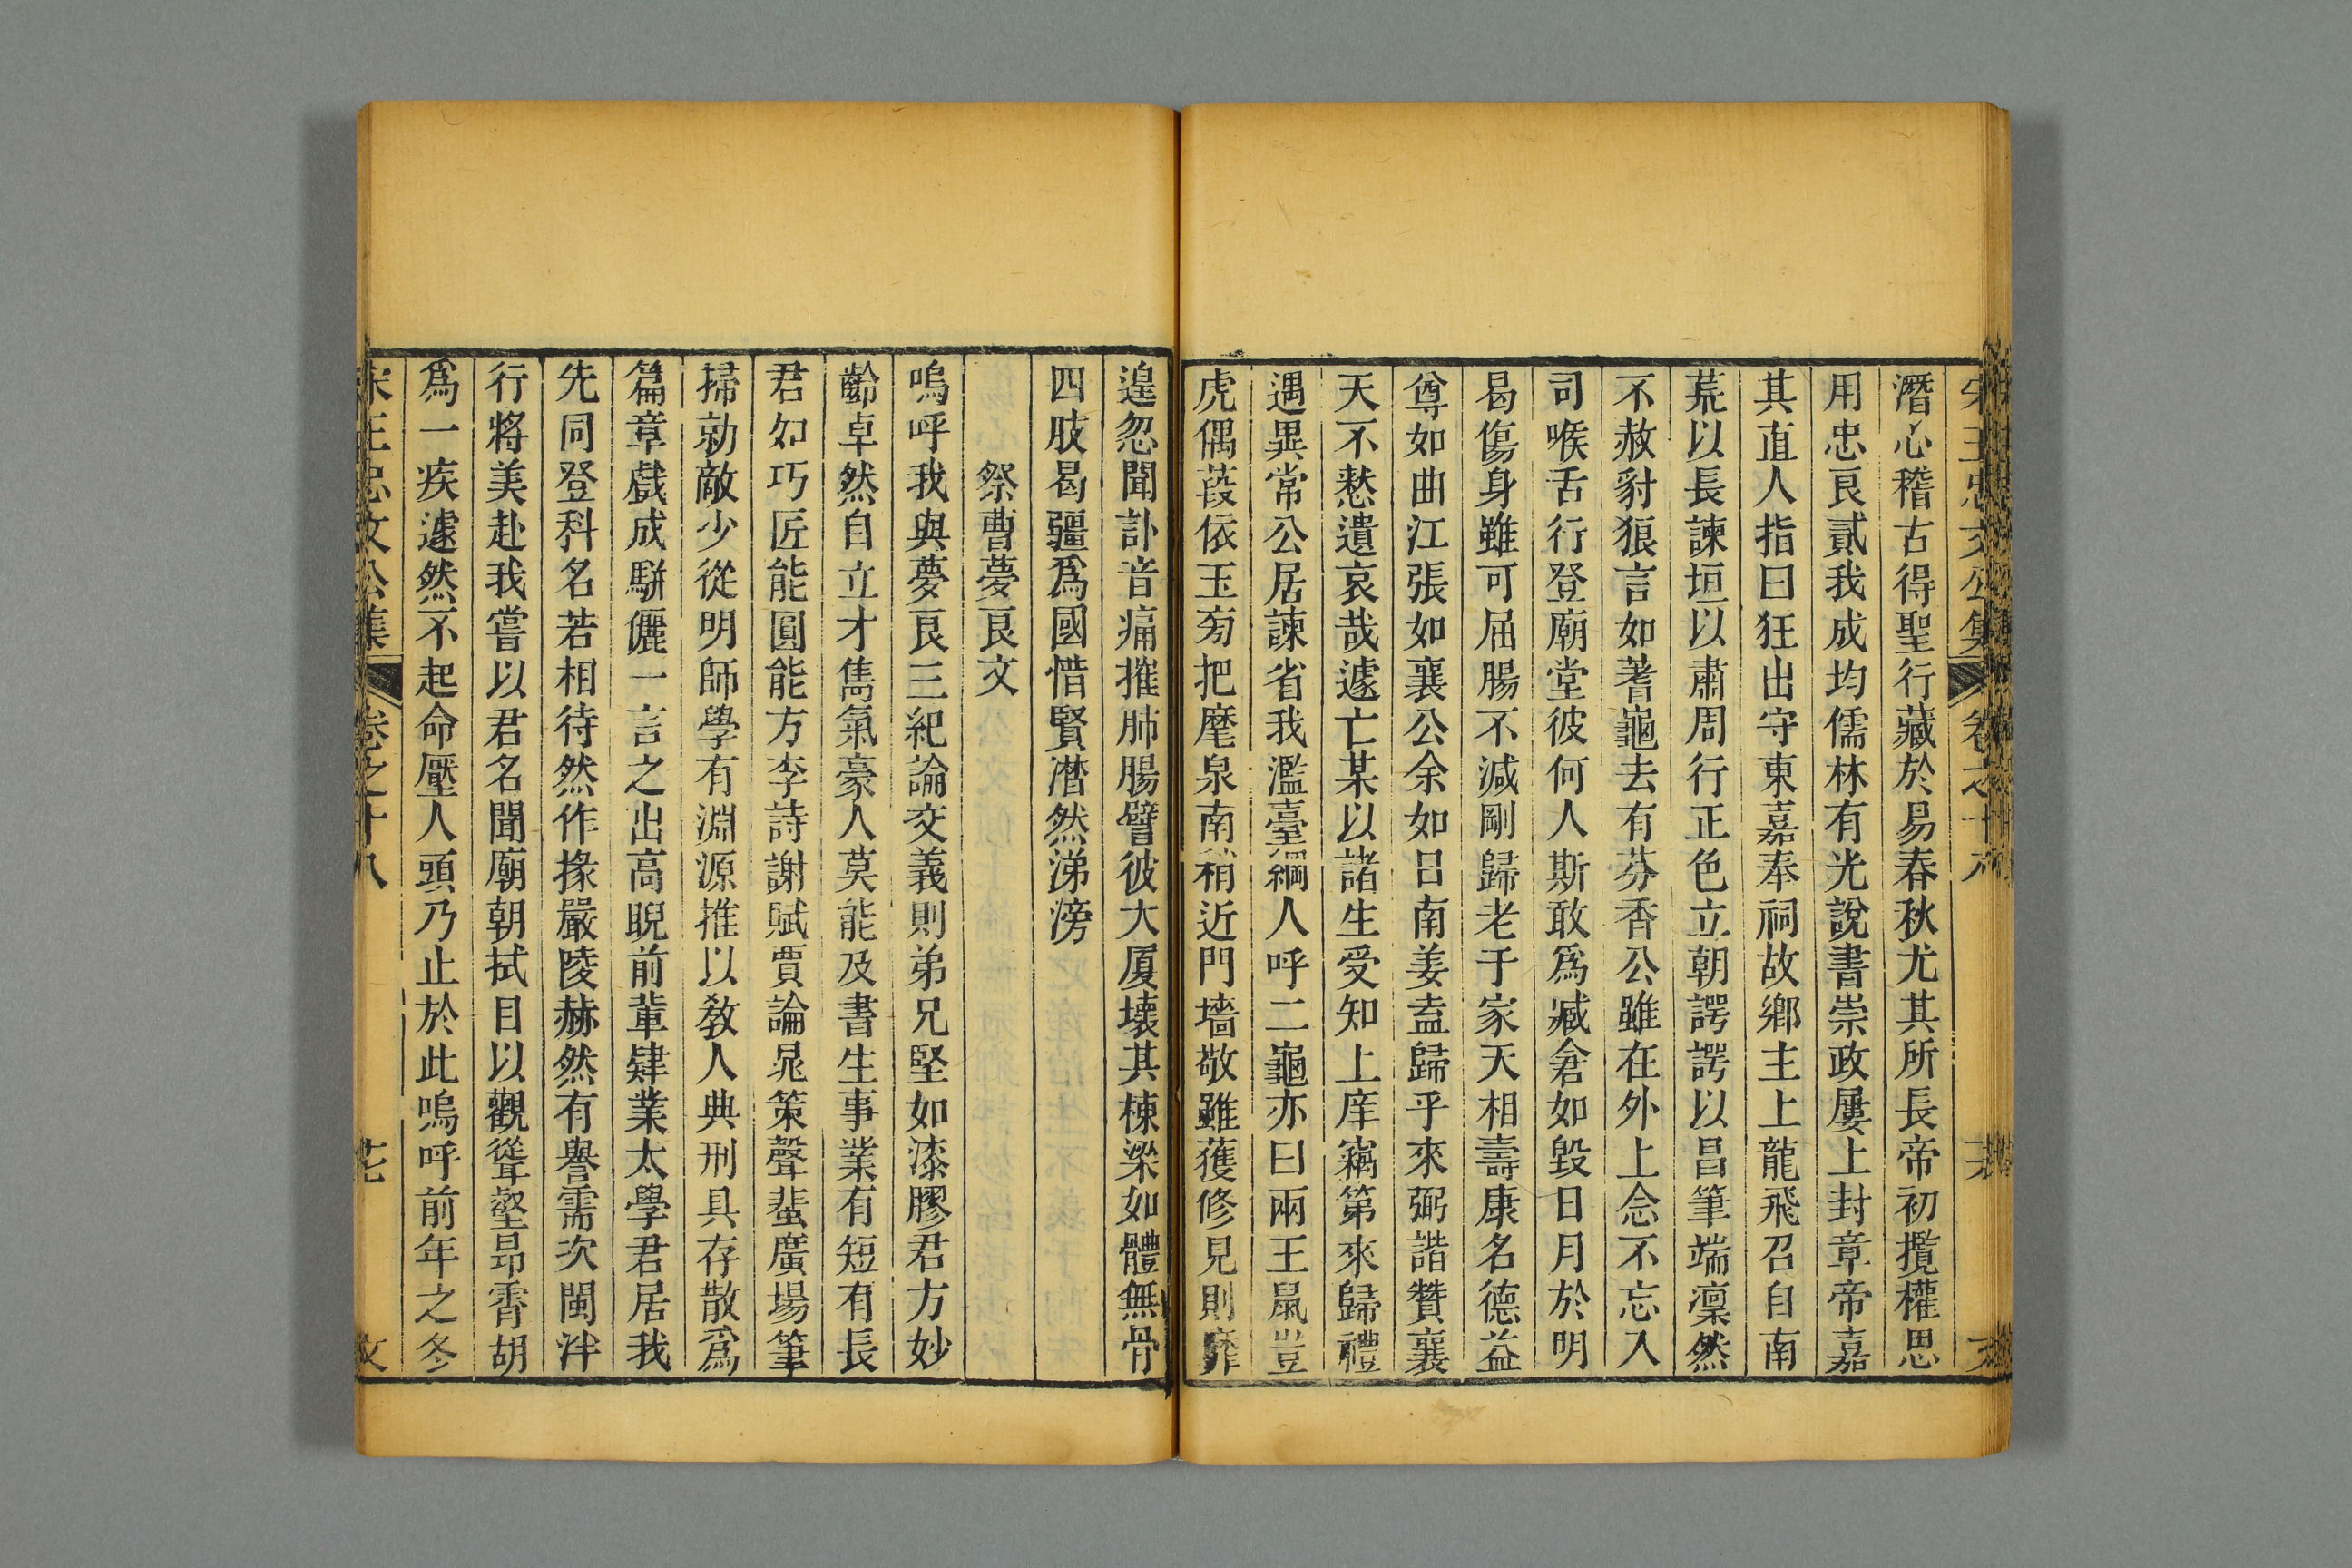 潛心稽古得聖行藏於易春秋尤其所長帝初攬權思
用忠良貳我成均儒林有光說書崇政屢上封章帝嘉
其直人指曰狂出守東嘉奉祠故鄉主上龍飛召自南
荒以長諫垣以肅周行正色立朝諤諤以昌筆端凜然
不赦豺狼言如蓍龜去有芬香公雖在外上念不忘入
司喉舌行登廟堂彼何人斯敢爲臧倉如毀日月於明
曷傷身雖可屈腸不減剛歸老于家天相壽康名德益
尊如曲江張如襄公余如呂南姜盍歸乎來弼諧贊襄
天不憗遺哀哉遽亡某以諸生受知上庠竊第來歸禮
遇異常公居諫省我濫臺綱人呼二龜亦曰兩王鼠豈
虎偶葭依玉旁把麾泉南稍近門墻敬雖獲修見則靡
遑忽聞訃音痛摧肺腸譬彼大厦壞其棟梁如體無骨
四肢曷彊爲國惜賢潸然涕滂
祭曹夢良文
嗚呼我與夢良三紀論交義則弟兄堅如漆膠君方妙
齡卓然自立才雋氣豪人莫能及書生事業有短有長
君如巧匠能圓能方李詩謝賦賈論晁策聲蜚廣場筆
掃勍敵少從明師學有淵源推以敎人典刑具存散爲
篇章戲成駢儷一言之出高睨前輩肄業太學君居我
先同登科名若相待然作掾嚴陵赫然有譽需次閩泮
行將美赴我嘗以君名聞廟朝拭目以觀聳壑昂霄胡
爲一疾遽然不起命壓人頭乃止於此嗚呼前年之冬
宋王忠文公集 卷之十八